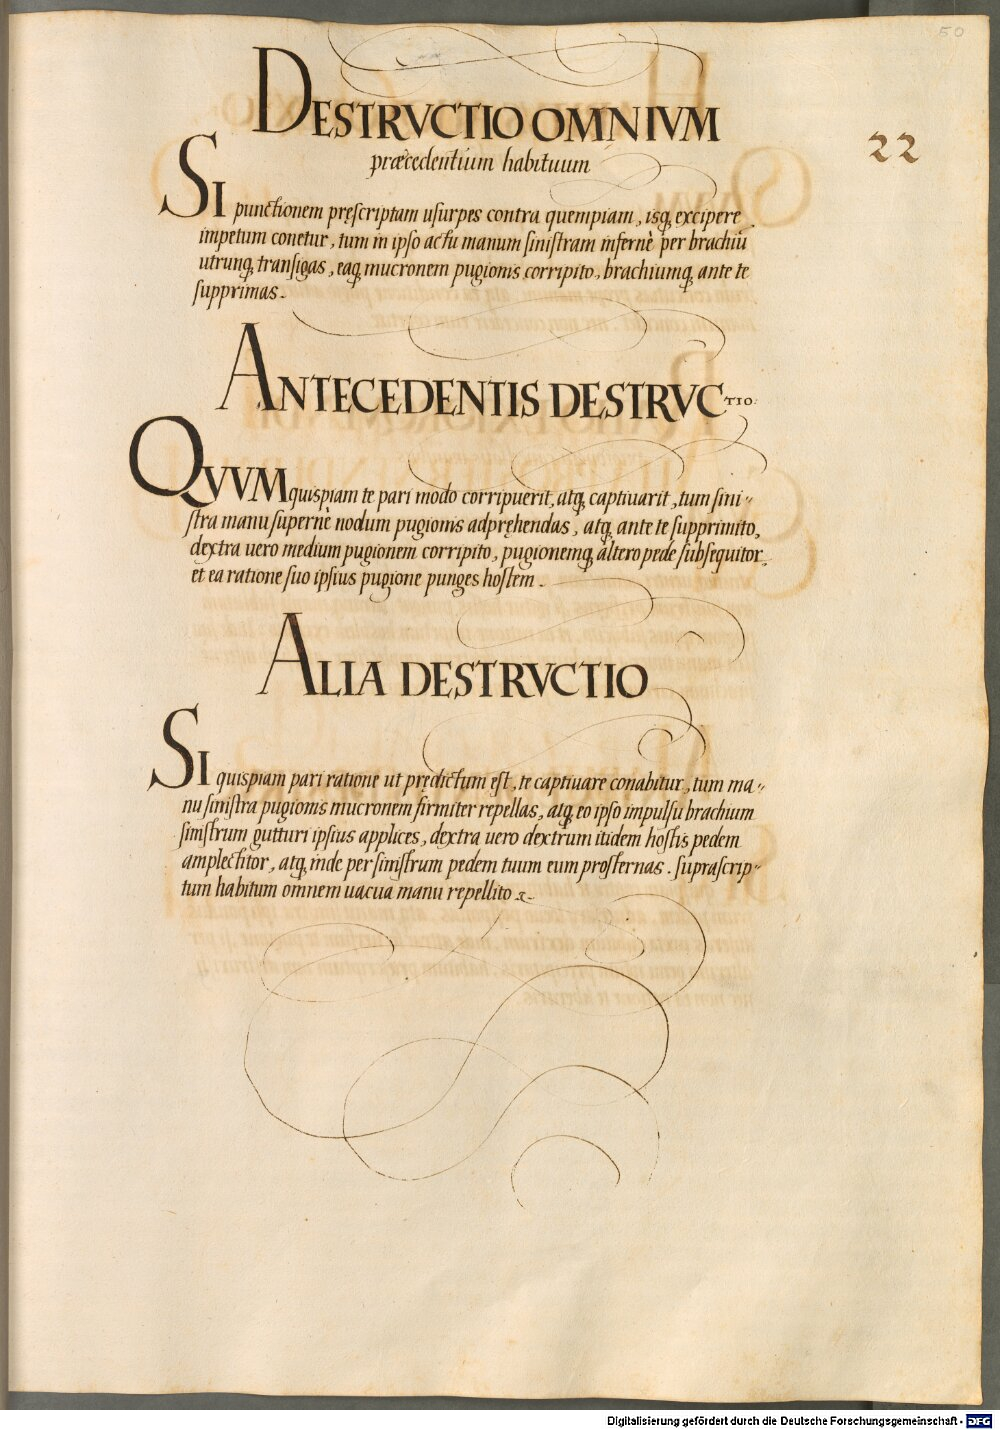 50
DESTRVCTIO OMNIVM
22
præcedentium habituum
SI punctionem pręscriptam uſurpes contra quempiam, isq; excipere
impetum conetur, tum in ipso actu manum ſiniſtram infernè per brachiū
utrunq; tranſigas, eaq; mucronem pugionis corripito, brachiumq; ante te
ſupprimas.
ANTECEDENTIS DESTRVCTIO.
QVVM quiſpiam te pari modo corripuerit, atq; captiuarit, tum ſini-
ſtra manu ſupernè nodum pugionis adpręhendas, atq; ante te ſupprimito,
dextra uero medium pugionem corripito, pugionemq; altero pede ſubſequitor,
et ea ratione ſuo ipſius pugione punges hoſtem.
ALIA DESTRVCTIO
SI quiſpiam pari ratione ut prędictum eſt, te captiuare conabitur, tum ma-
nu ſiniſtra pugionis mucronem firmiter repellas, atq; eo ipſo impulſu brachium
ſiniſtrum gutturi ipſius applices, dextra uero dextrum itidem hoſtis pedem
amplectitor, atq; inde per ſiniſtrum pedem tuum eum proſternas. ſupraſcrip-
tum habitum omnem uacua manu repellito.
Digitalisierung gefördert durch die Deutsche Forschungsgemeinschaft - DFG